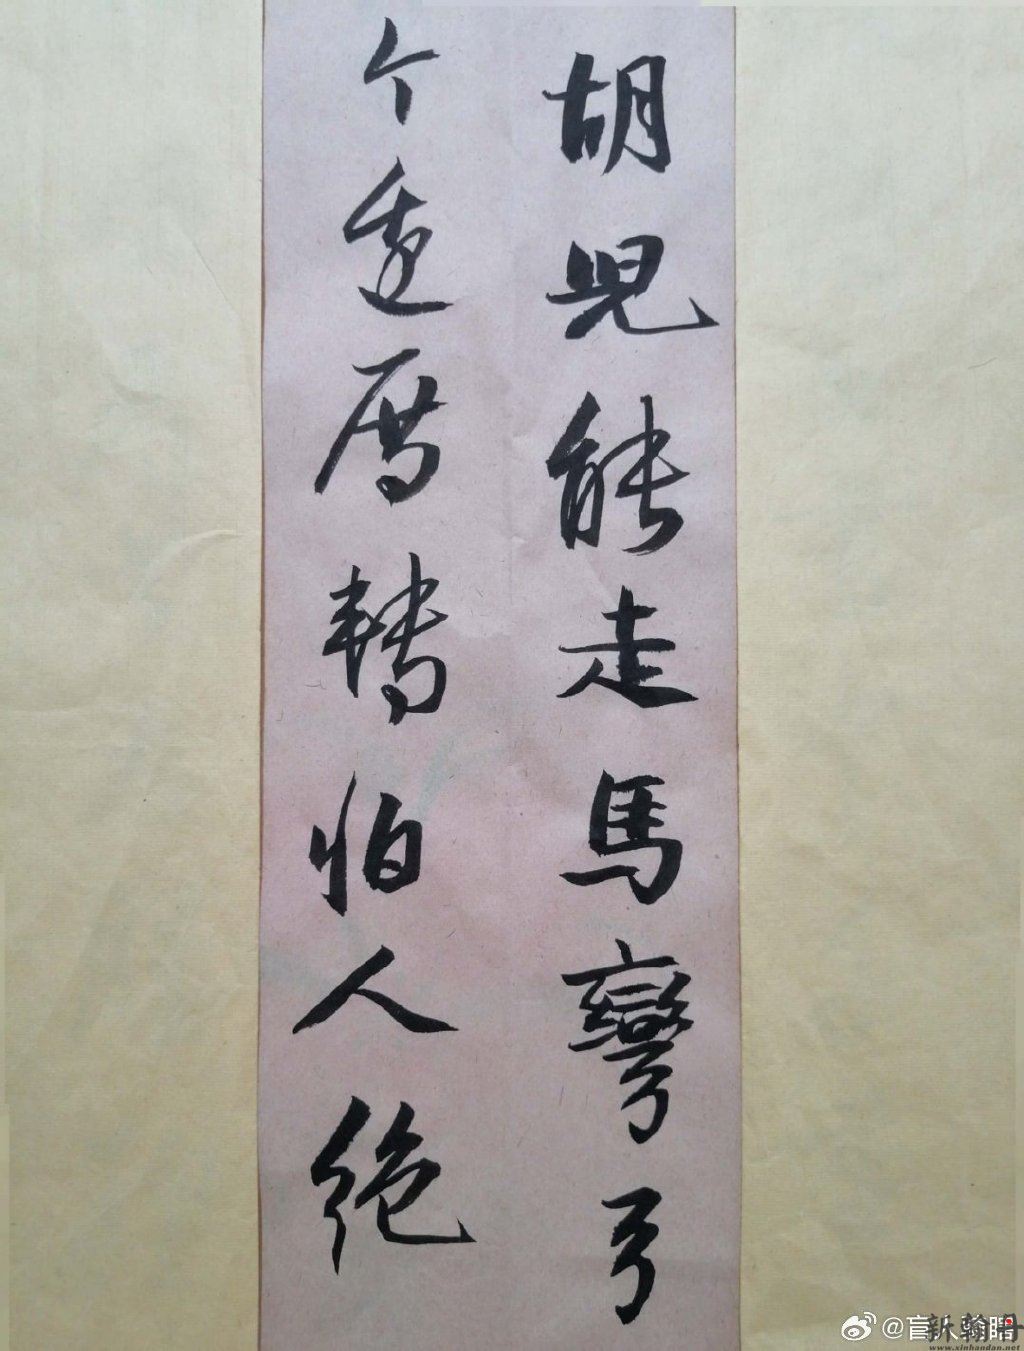 胡兒能走馬彎弓
个轉怕人絶
新翰丹
www.xinhandan.net